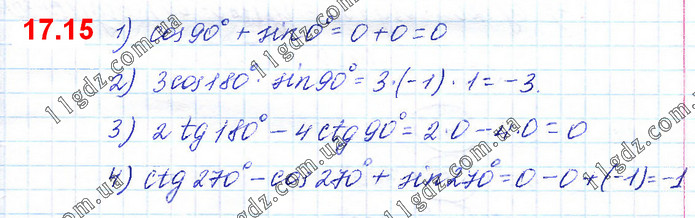 17.15 1) cos90° + sin0° = 0 + 0 = 0
2) 3cos180° · sin90° = 3 · (-1) · 1 = -3.
3) 2 tg180° - 4ctg90° = 2 · 0 - 4 · 0 = 0
4) ctg270° - cos270° + sin270° = 0 - 0 + (-1) = -1
11gdz.com.ua
11gdz.com.ua
11gdz.com.ua
11gdz.com.ua